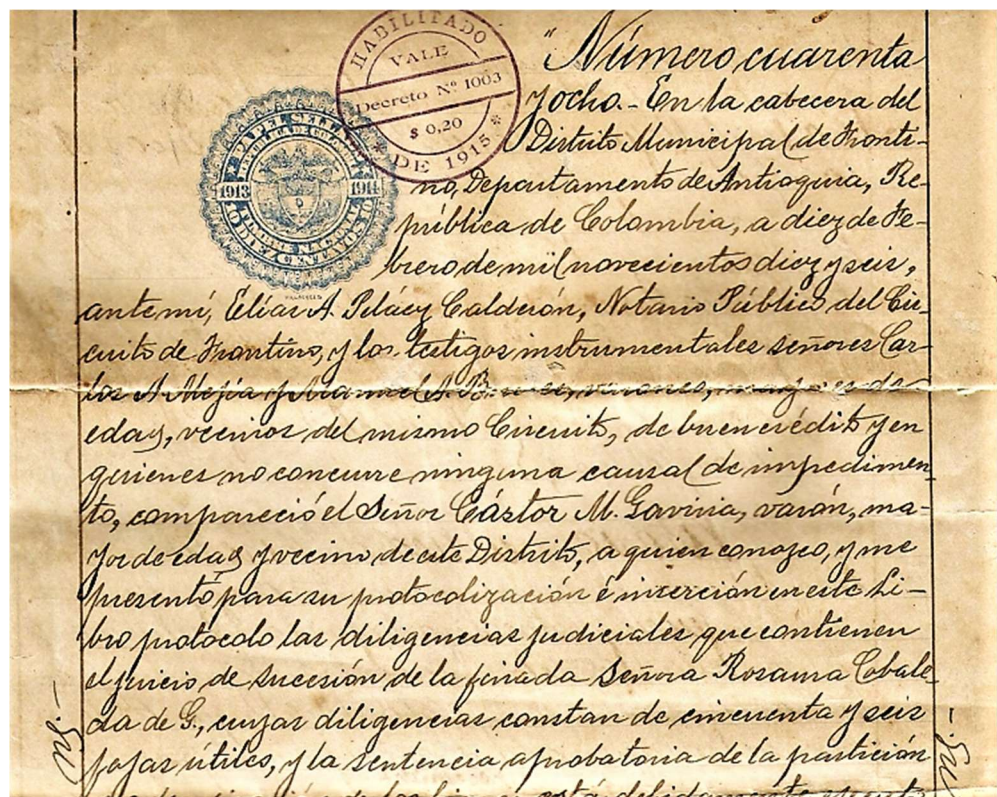 HABILITADO
VALE
Decreto Nº 1003
$ 0,20
* DE 1915 *
PAPEL SELLADO
REPUBLICA DE COLOMBIA
1913 1914
TIMBRE NACIONAL
10 DIEZ CENTAVOS 10
"Número cuarenta
y ocho.- En la cabecera del
Distrito Municipal de Fronti-
no, Departamento de Antioquia, Re-
pública de Colombia, a diez de Fe-
brero de mil novecientos diez y seis,
ante mí, Elías A. Peláez Calderón, Notario Público del Cir-
cuito de Frontino, y los testigos instrumentales señores Car-
los A Mejía y Manuel A. varones, mayores de
edad, vecinos del mismo Circuito, de buen crédito y en
quienes no concurre ninguna causal de impedimen-
to, compareció el Señor Cástor M. Gaviria, varón, ma-
yor de edad y vecino de este Distrito, a quien conozco, y me
presentó para su protocolización é inserción en este Li-
bro protocolo las diligencias judiciales que contienen
el juicio de sucesión de la finada Señora Rosana Cobale-
da de G., cuyas diligencias constan de cincuenta y seis
fojas útiles, y la sentencia aprobatoria de la partición
está debidamente